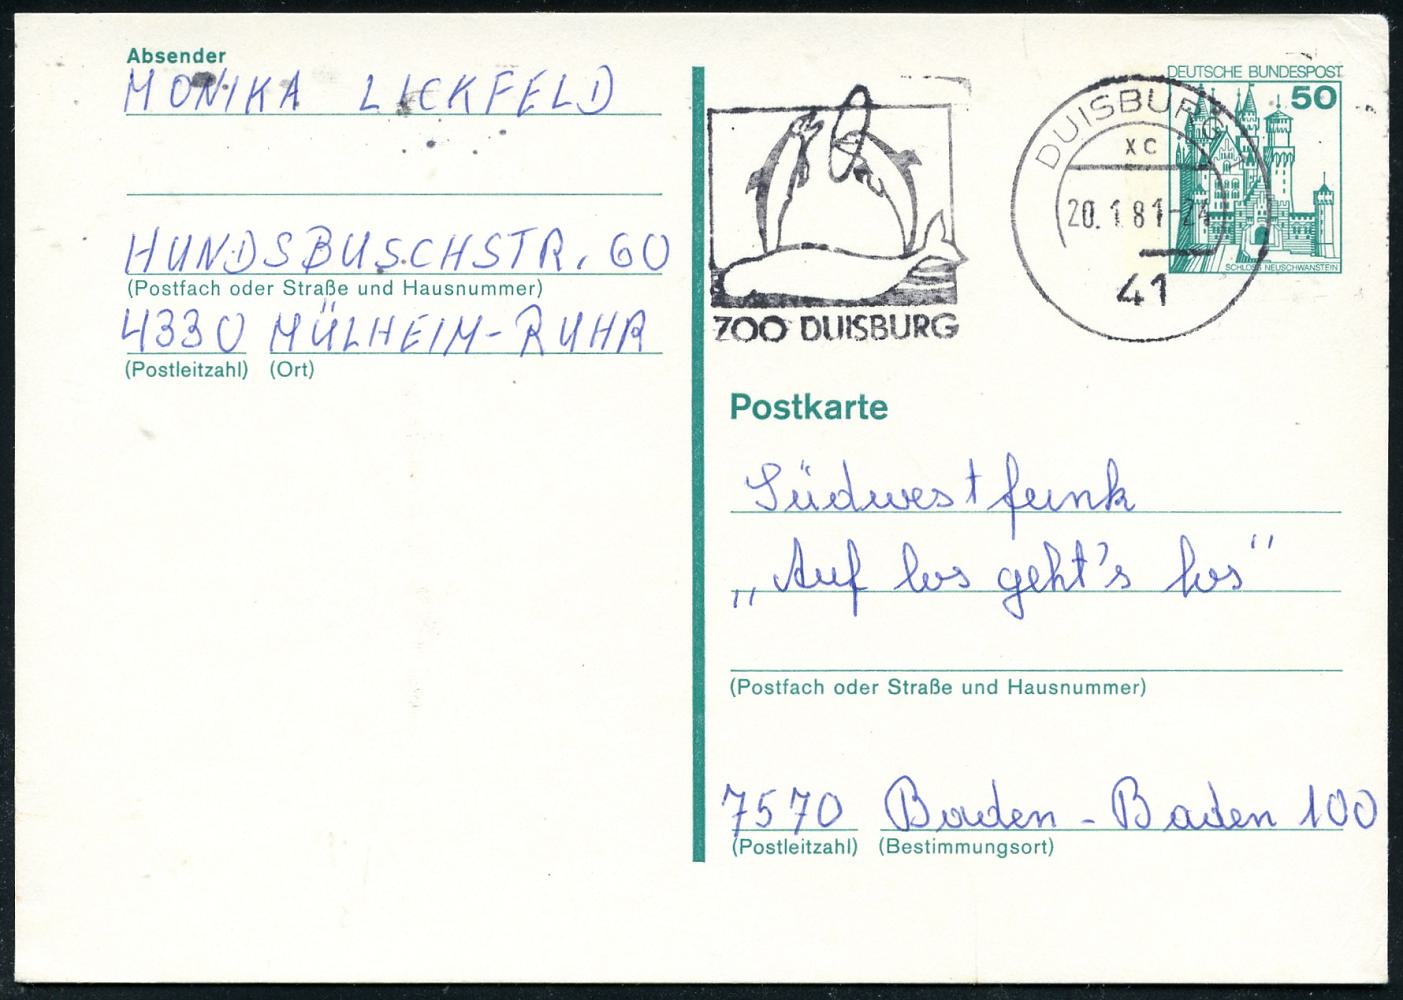 Absender
MONIKA LICKFELD
HUNDSBUSCHSTR. 60
(Postfach oder Straße und Hausnummer)
4330 MÜLHEIM-RUHR
(Postleitzahl) (Ort)
ZOO DUISBURG
DUISBURG
xc
20.1.81-24
41
DEUTSCHE BUNDESPOST
50
SCHLOSS NEUSCHWANSTEIN
Postkarte
Südwestfunk
„Auf los geht's los“
(Postfach oder Straße und Hausnummer)
7570 Baden-Baden 100
(Postleitzahl) (Bestimmungsort)